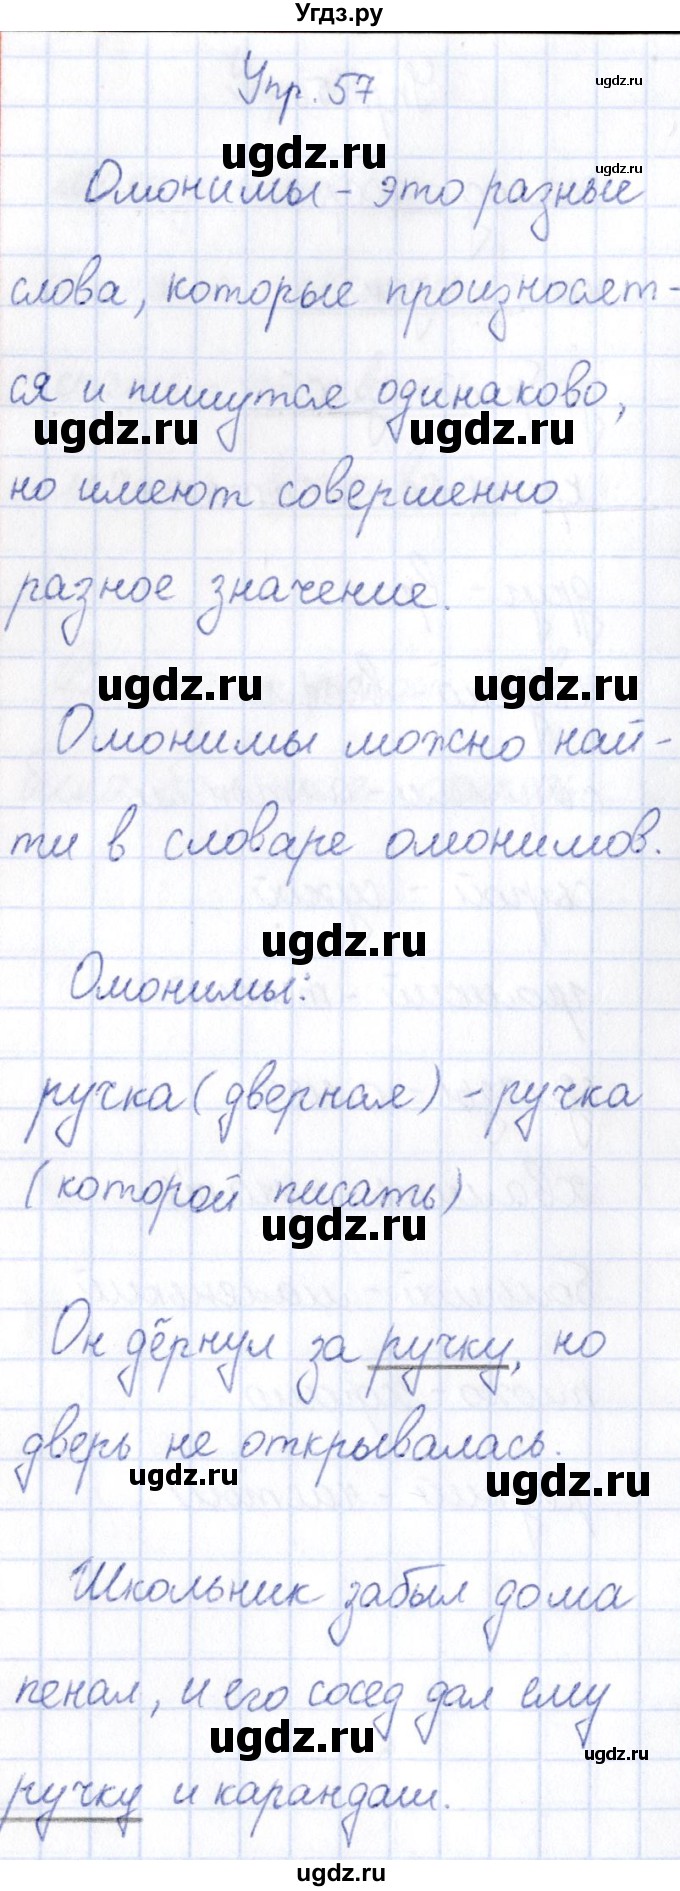 Угдз.ру
Упр. 57
ugdz.ru
ugdz.ru
ugdz.ru
Омонимы - это разные
слова, которые произносят-
ся и пишутся одинаково,
ugdz.ru
ugdz.ru
но имеют совершенно
разное значение.
ugdz.ru
ugdz.ru
Омонимы можно най-
ти в словаре омонимов.
ugdz.ru
Омонимы:
ручка (дверная) - ручка
(которой писать)
ugdz.ru
Он дёрнул за ручку, но
дверь не открывалась.
ugdz.ru
ugdz.ru
Школьник забыл дома
пенал, и его сосед дал ему
ugdz.ru
ugdz.ru
ручку и карандаш.
ugdz.ru